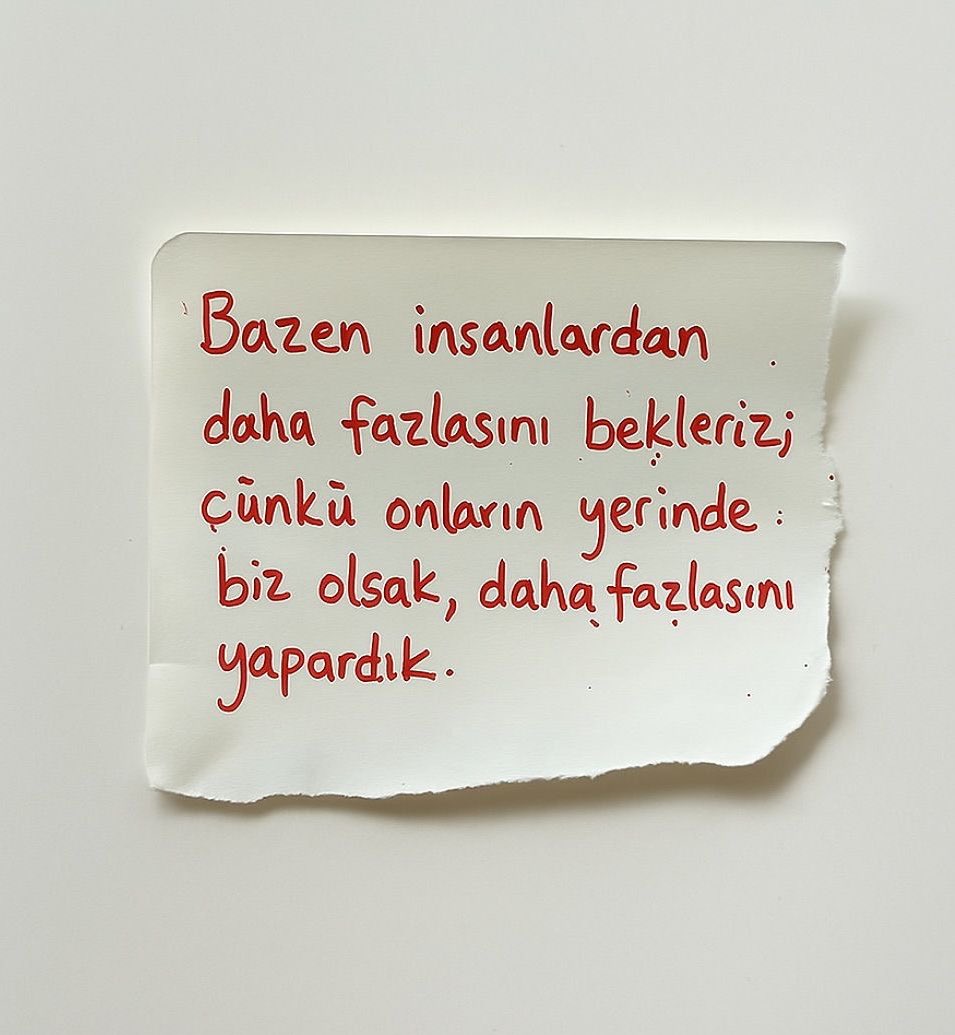 Bazen insanlardan
daha fazlasını bekleriz;
çünkü onların yerinde
biz olsak, daha fazlasını
yapardık.